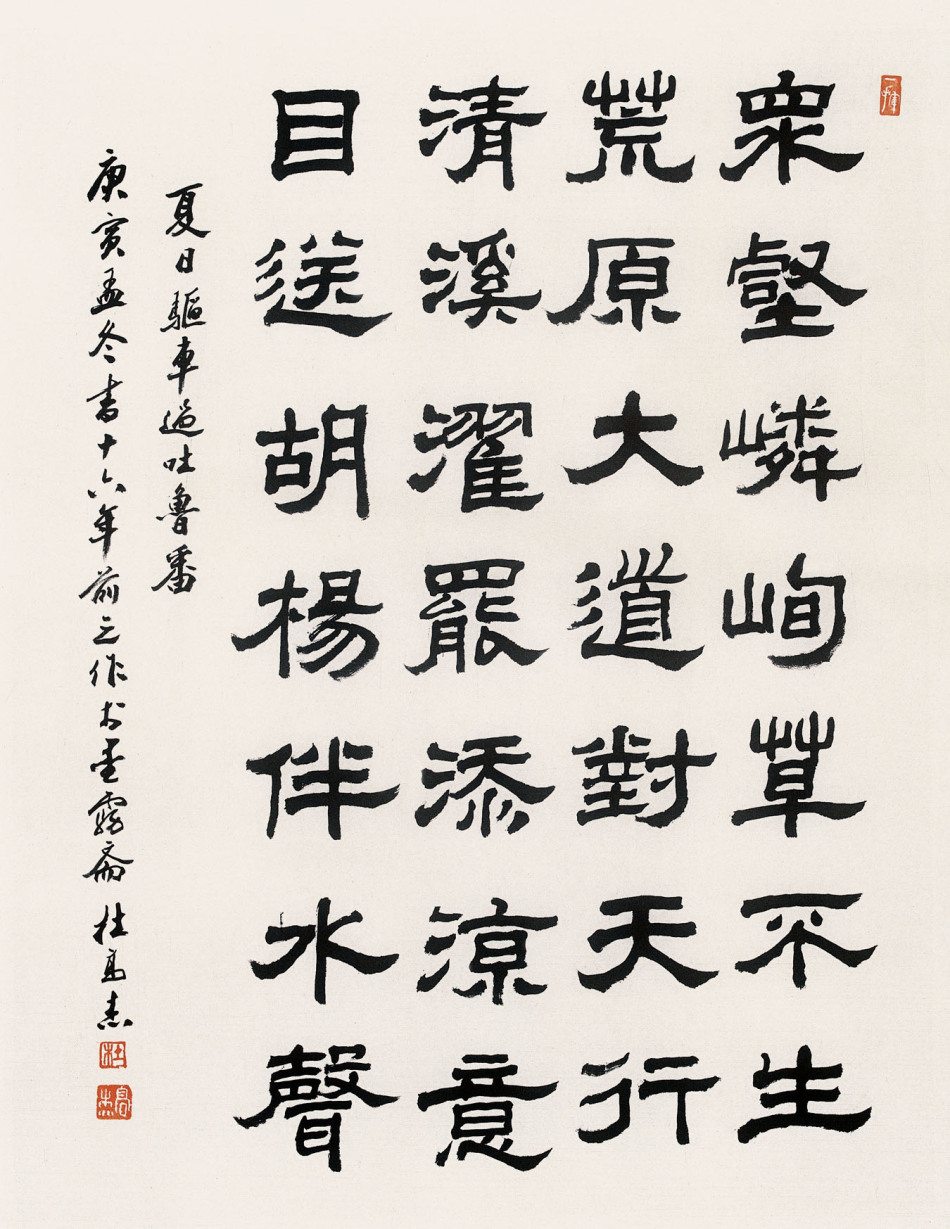 眾壑嶙峋草不生
荒原大道對天行
清溪濯罷添涼意
目送胡楊伴水聲
夏日驅車過吐魯番
庚寅孟冬書十六年前之作於雲霧齋 杜高杰